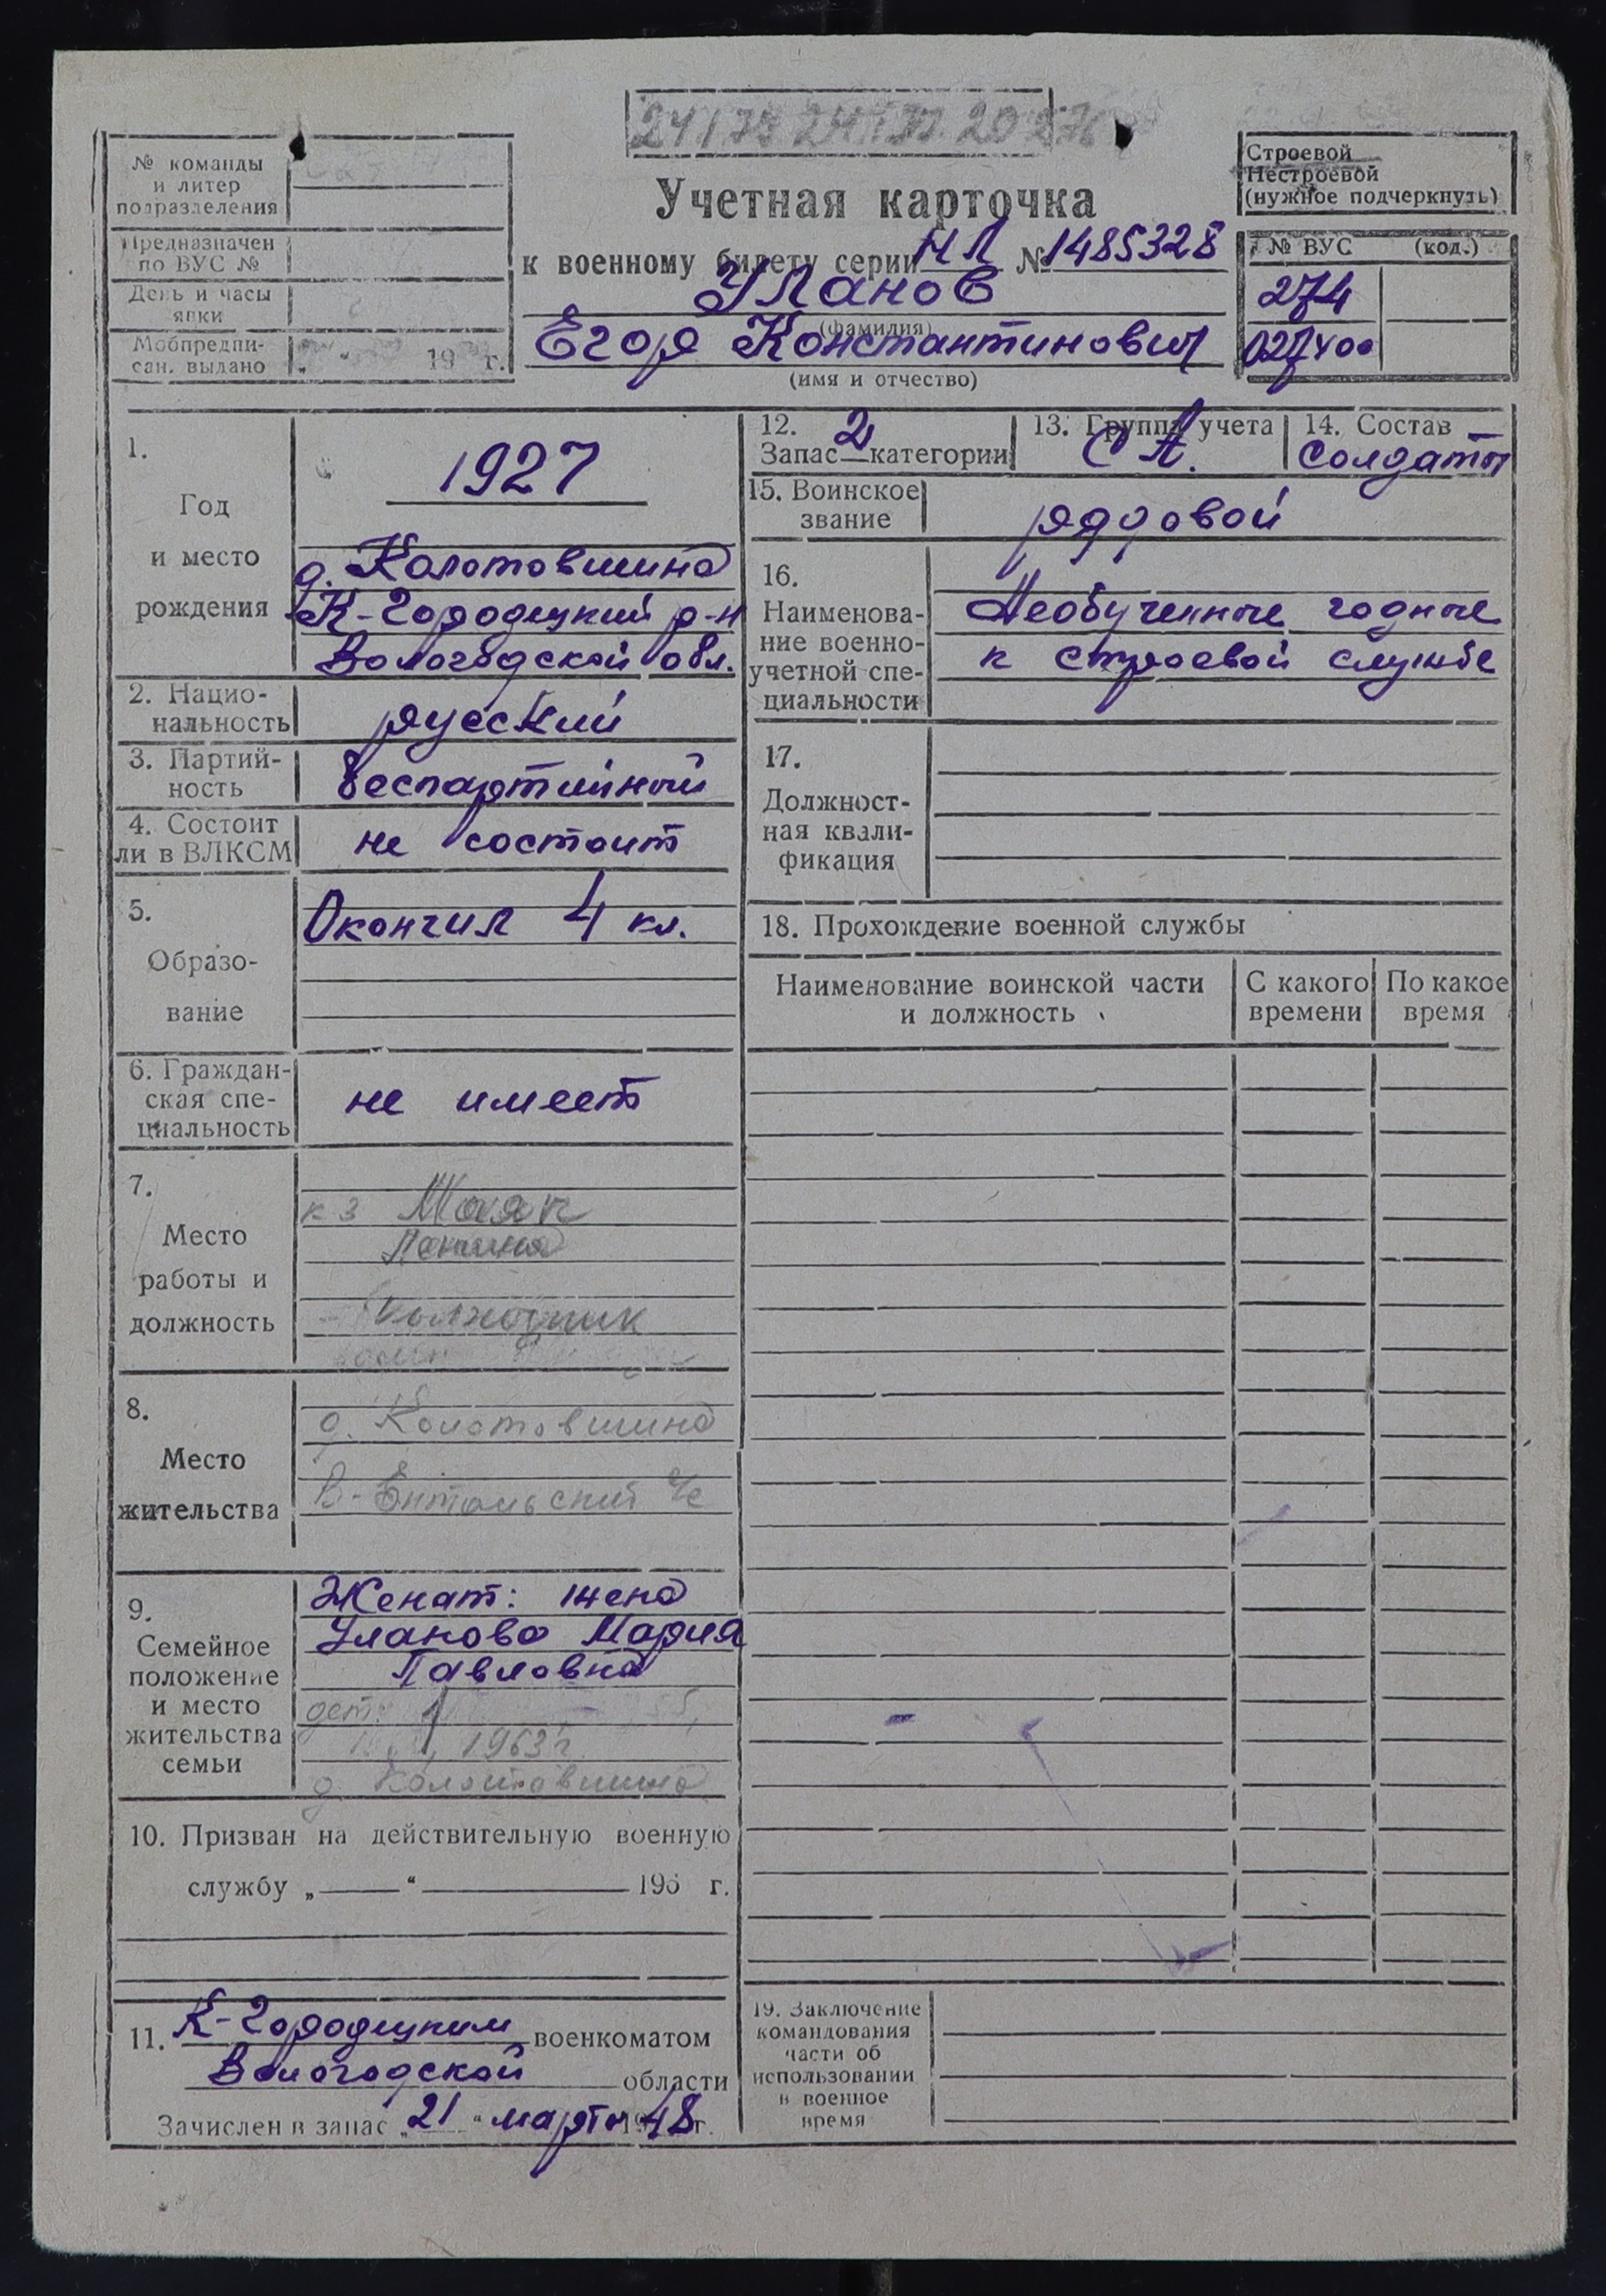 № команды
и литер
подразделения
Предназначен
по ВУС №
День и часы
явки
Мобпредпи-
сан. выдано „ “ 19 г.
Учетная карточка
к военному билету серии НЛ № 1485328
Уланов
(фамилия)
Егор Константинович
(имя и отчество)
Строевой
Нестроевой
(нужное подчеркнуть)
№ ВУС (код.)
274
027400
1.
Год
и место
рождения
1927
д. Колотовшина
К-Городецкий р-н
Вологодской обл.
2. Нацио-
нальность
русский
3. Партий-
ность
беспартийный
4. Состоит
ли в ВЛКСМ
не состоит
5.
Образо-
вание
Окончил 4 кл.
6. Граждан-
ская спе-
циальность
не имеет
7.
Место
работы и
должность
к з Маяк
Ленина
колхозник
8.
Место
жительства
д. Колотовшина
В-Ентальский с/с
9.
Семейное
положение
и место
жительства
семьи
Женат: жена
Уланова Мария
Павловна
дет: 1
1963 г.
д. Колотовшина
10. Призван на действительную военную
службу „ “ 195 г.
11. К-Городецким военкоматом
Вологодской области
Зачислен в запас „21“ марта 1948 г.
12.
Запас 2 категории
13. Группа учета
СА.
14. Состав
Солдаты
15. Воинское
звание
рядовой
16.
Наименова-
ние военно-
учетной спе-
циальности
Необученные годные
к строевой службе
17.
Должност-
ная квали-
фикация
18. Прохождение военной службы
Наименование воинской части
и должность
С какого
времени
По какое
время
19. Заключение
командования
части об
использовании
в военное
время